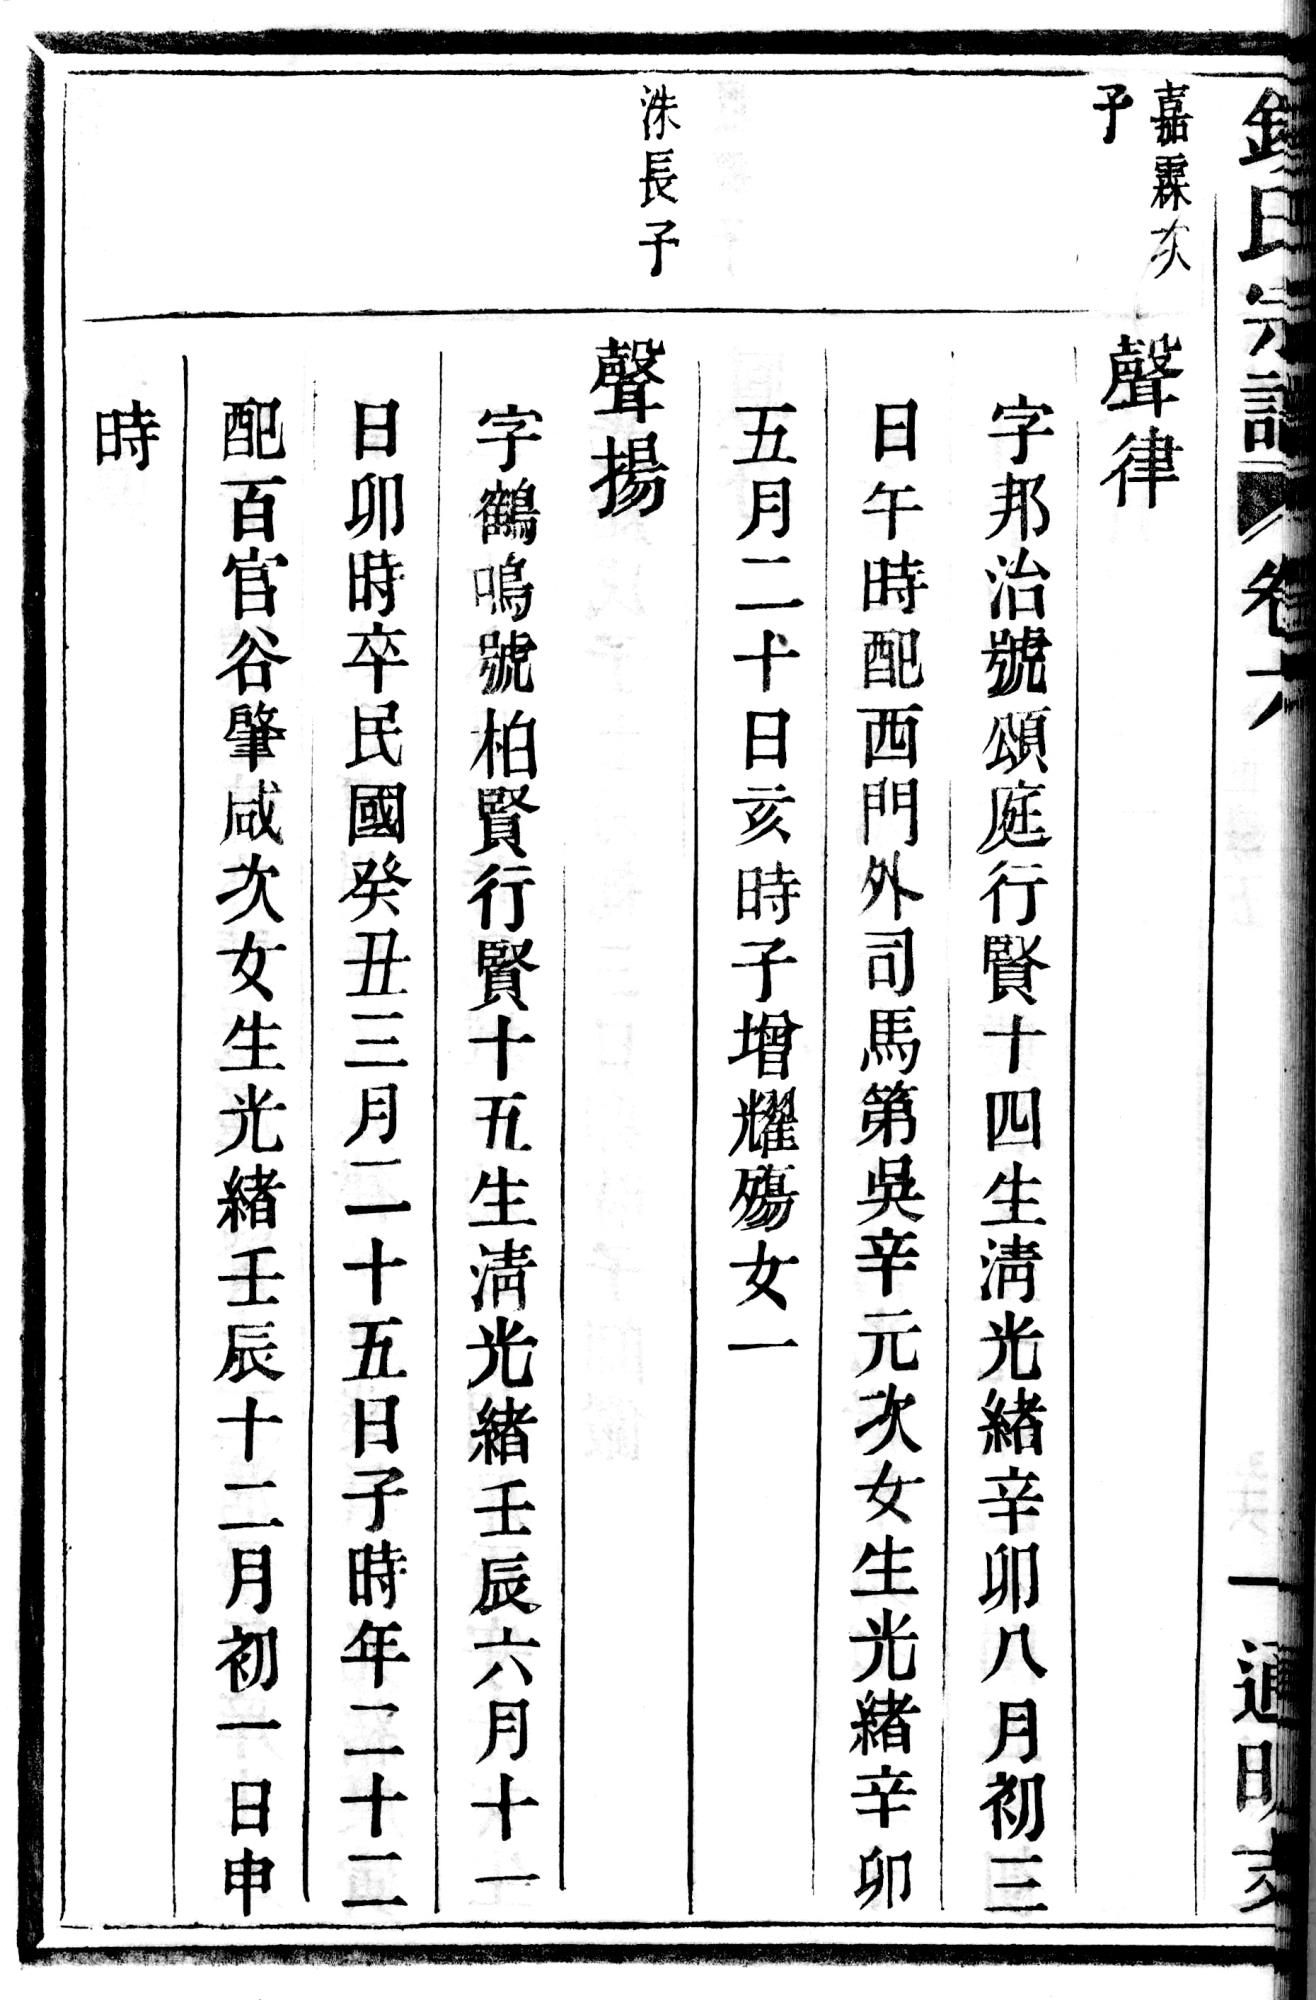 氏宗譜 卷六 一 通明支
嘉霖次
子
聲律
字邦治號頌庭行賢十四生淸光緖辛卯八月初三
日午時配西門外司馬第吳辛元次女生光緖辛卯
五月二十日亥時子增耀殤女一
洙長子
聲揚
字鶴鳴號柏賢行賢十五生淸光緖壬辰六月十一
日卯時卒民國癸丑三月二十五日子時年二十二
配百官谷肇咸次女生光緖壬辰十二月初一日申
時